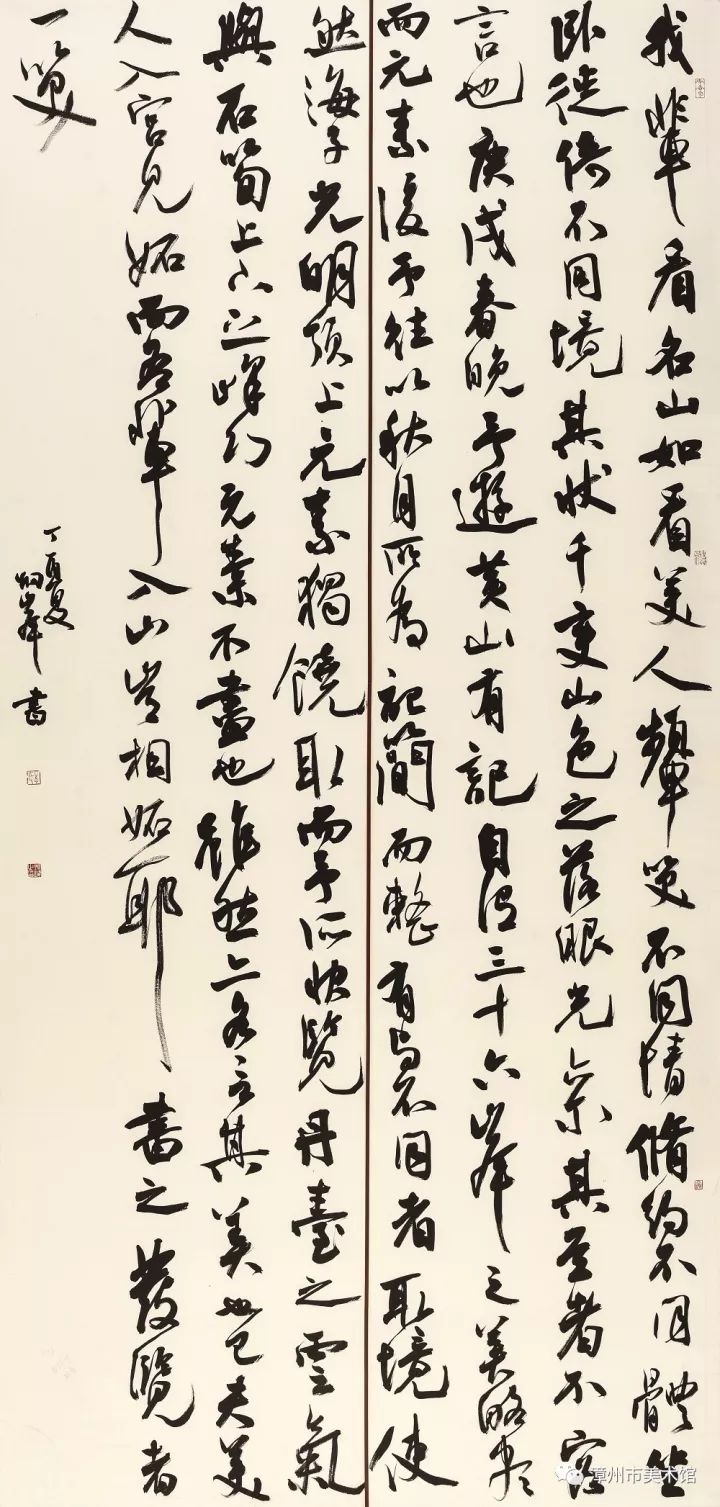 我輩看名山如看美人顰笑不同情脩約不同體坐
卧徙倚不同境其狀千變山色之落眼光亦其至者不容
言也庚戌春晚予遊黃山有記自謂三十六峯之美略盡
而元素後予往以秋月所為記簡而整有與不同者取境使
然海子光明頂上元素獨饒取而予所快覽丹臺之雲氣
與石筍上下之峰巧元素不盡也雖然亦各言其美也已夫美
人入宮見妬而吾輩入山豈相妬耶書之發覽者
一笑
丁酉夏
峯書
漳州市美术馆